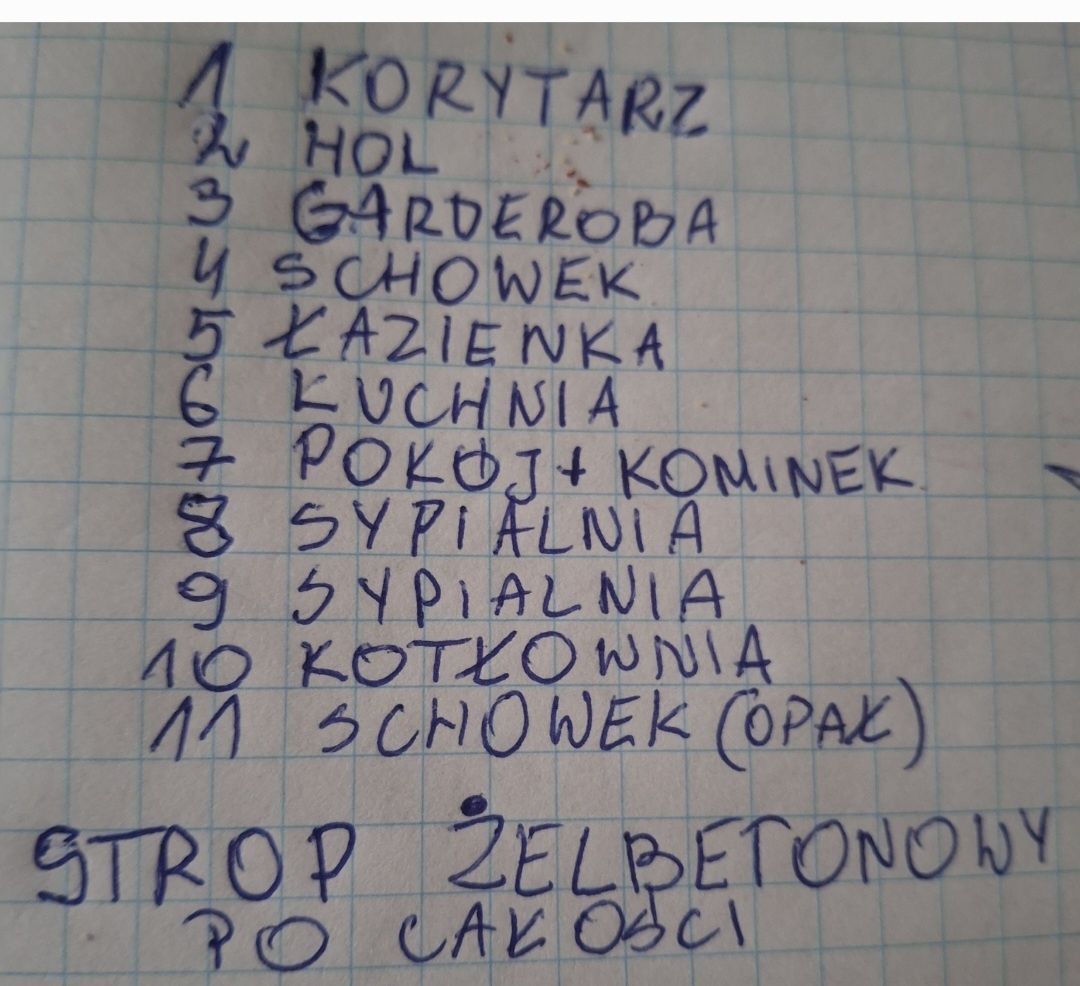 1 KORYTARZ
2 HOL
3 GARDEROBA
4 SCHOWEK
5 ŁAZIENKA
6 KUCHNIA
7 POKÓJ + KOMINEK
8 SYPIALNIA
9 SYPIALNIA
10 KOTŁOWNIA
11 SCHOWEK (OPAŁ)
STROP ŻELBETONOWY
PO CAŁOŚCI